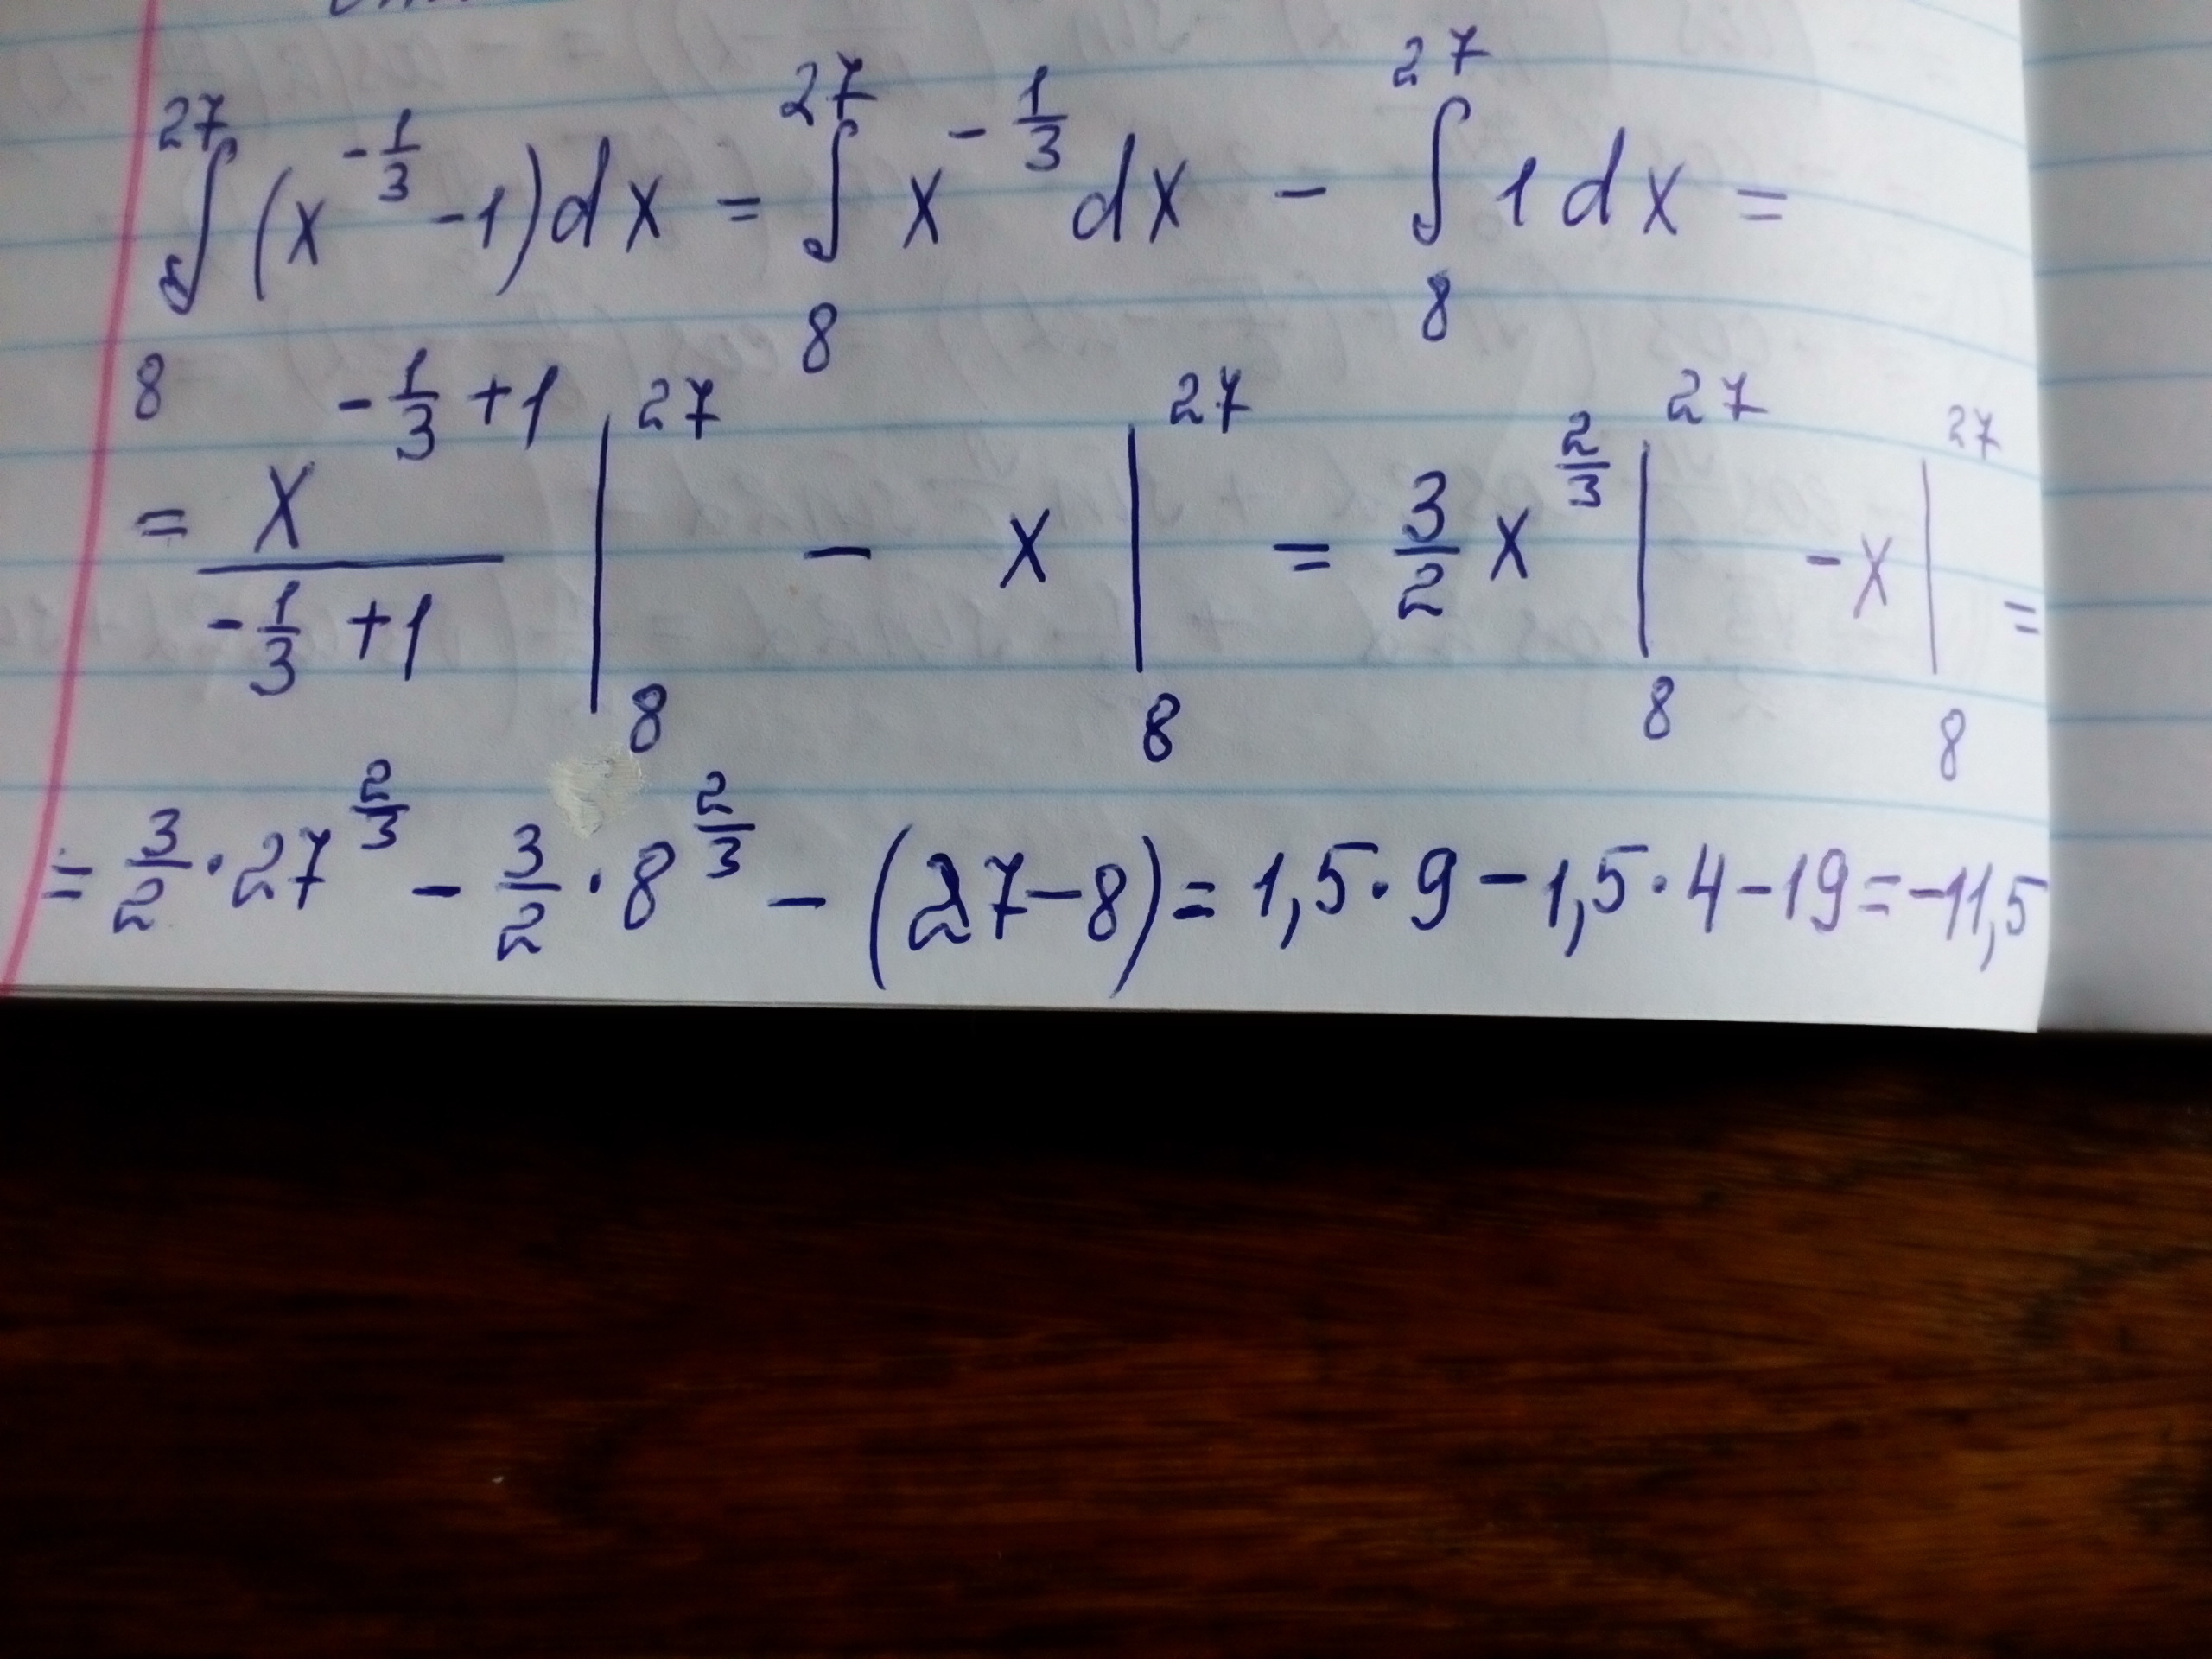 ∫₈²⁷ (x^(-1/3) - 1) dx = ∫₈²⁷ x^(-1/3) dx - ∫₈²⁷ 1 dx =
= x^(-1/3 + 1) / (-1/3 + 1) |₈²⁷ - x |₈²⁷ = 3/2 x^(2/3) |₈²⁷ - x |₈²⁷ =
= 3/2 · 27^(2/3) - 3/2 · 8^(2/3) - (27 - 8) = 1,5 · 9 - 1,5 · 4 - 19 = -11,5